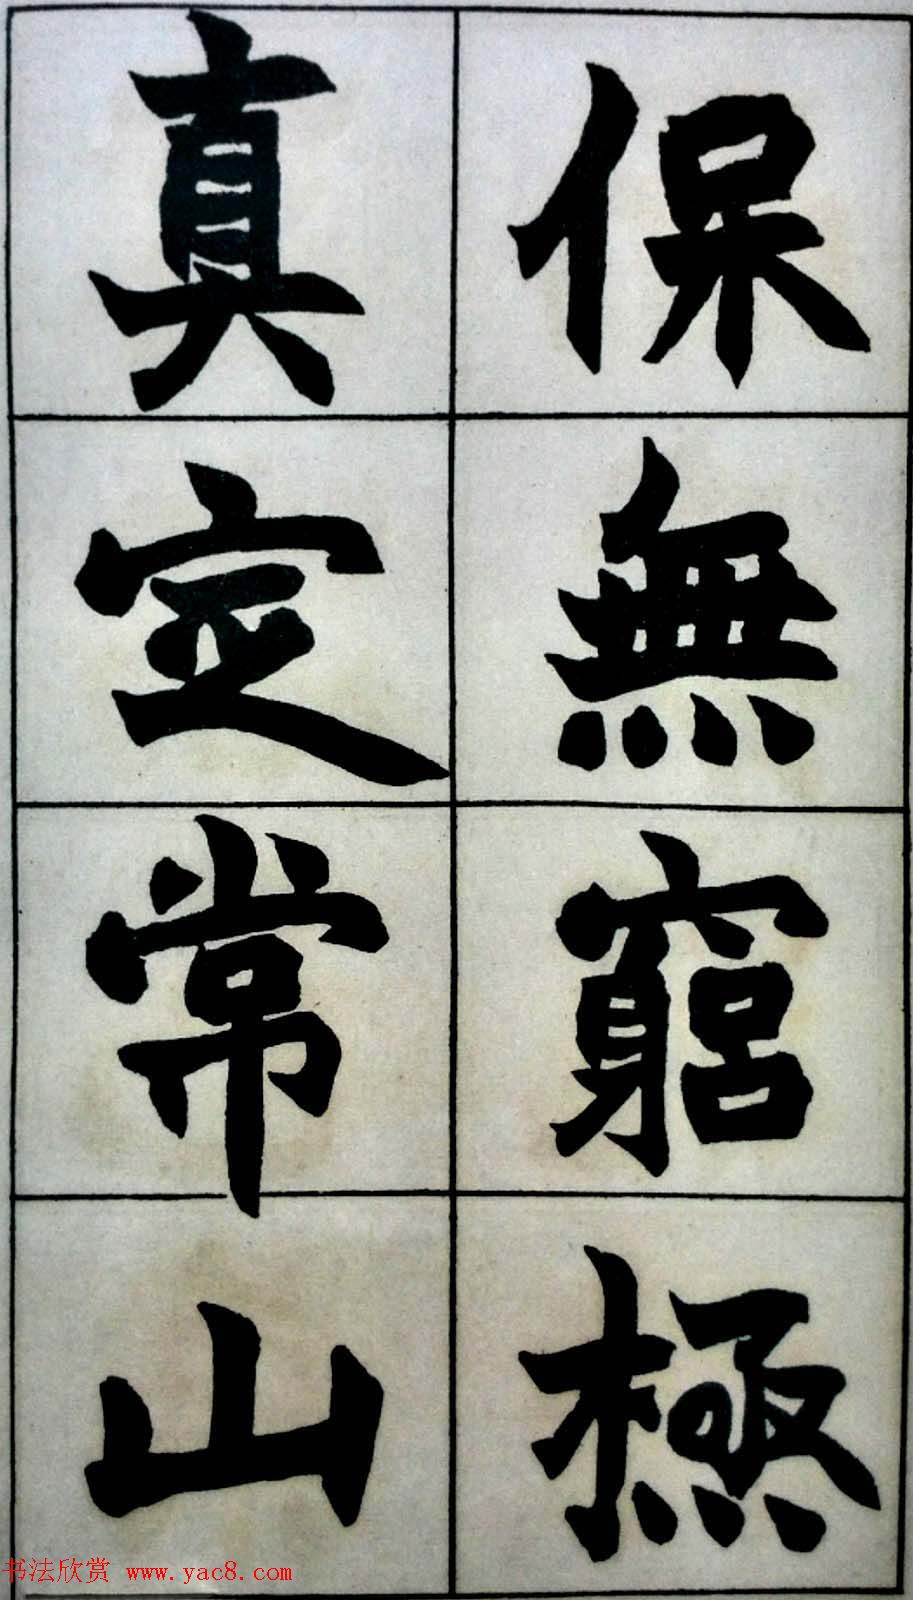 保無窮極
真定常山
书法欣赏 www.yac8.com